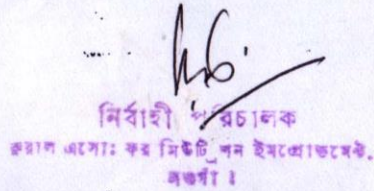 নির্বাহী পরিচালক
রুরাল এসো: ফর নিউট্রিশন ইমপ্রোভমেন্ট,
নওগাঁ ।